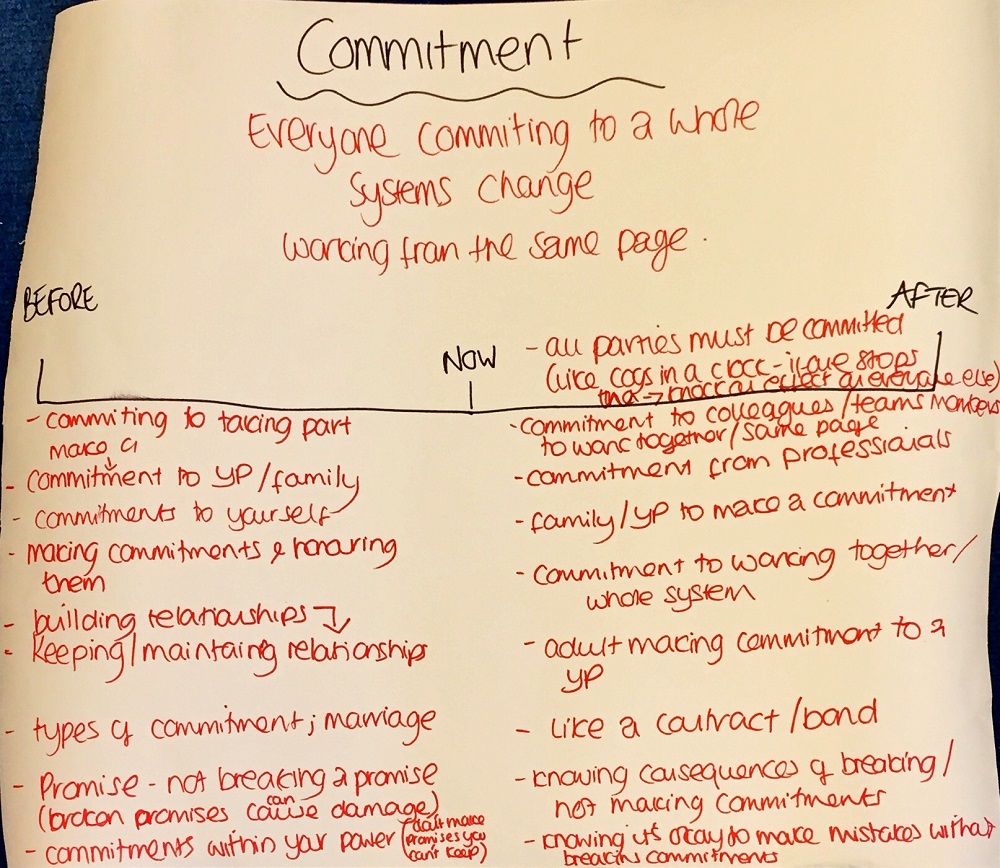 Commitment
Everyone commiting to a whole
systems change
working from the same page.
BEFORE
NOW
AFTER
- commiting to taking part
make a
- commitment to YP/family
- commitments to yourself
- making commitments & honouring
them
- building relationships
- keeping/maintaing relationships
- types of commitment; marriage
- Promise - not breaking a promise
(broken promises can cause damage)
- commitments within your power (don't make
promises you
can't keep)
- all parties must be committed
(like cogs in a clock - if one stops
that → knock on effect on everyone else)
- commitment to colleagues/teams managers
to work together/same page
- commitment from professionals
- family/YP to make a commitment
- commitment to working together/
whole system
- adult making commitment to a
YP
- like a contract/bond
- knowing consequences of breaking/
not making commitments
- knowing it's okay to make mistakes without
breaking commitments